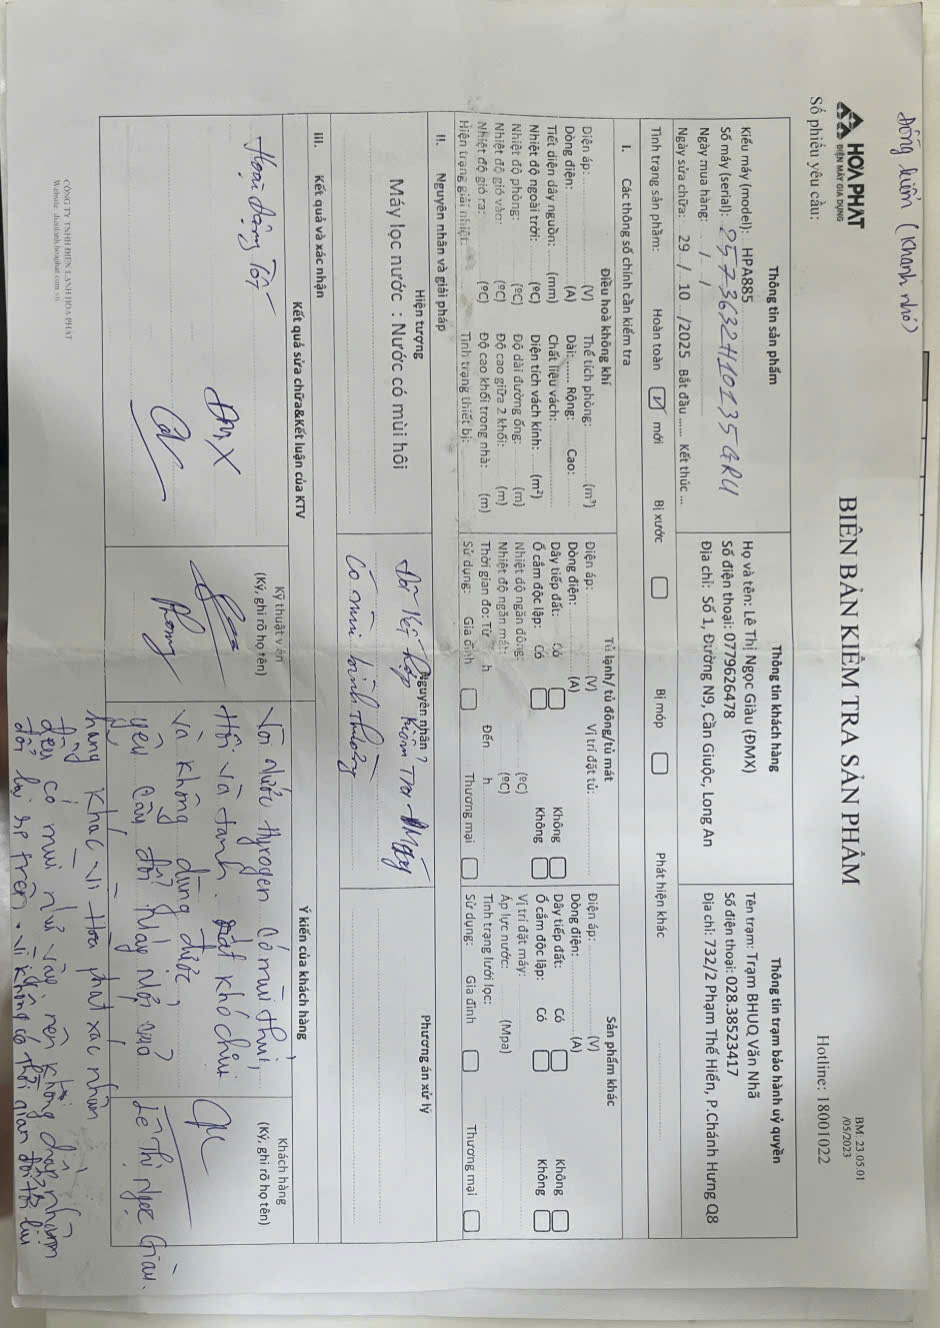 Đông kiểm (Khanh nhỏ)
HOA PHAT
ĐIỆN MÁY GIA DỤNG
Số phiếu yêu cầu:
BIÊN BẢN KIỂM TRA SẢN PHẨM
BM: 23.05.01
/05/2023
Hotline: 18001022
Thông tin sản phẩm
Kiểu máy (model): HPA885
Số máy (serial): 2573632H10135GRU
Ngày mua hàng: / /
Ngày sửa chữa: 29 / 10 /2025 Bắt đầu ...... Kết thúc ...
Thông tin khách hàng
Họ và tên: Lê Thị Ngọc Giàu (ĐMX)
Số điện thoại: 0779626478
Địa chỉ: Số 1, Đường N9, Cần Giuộc, Long An
Thông tin trạm bảo hành uỷ quyền
Tên trạm: Trạm BHUQ Văn Nhã
Số điện thoại: 028.38523417
Địa chỉ: 732/2 Phạm Thế Hiển, P.Chánh Hưng Q8
Tình trạng sản phẩm: Hoàn toàn mới Bị xước Bị móp Phát hiện khác
I. Các thông số chính cần kiểm tra
Điều hoà không khí
Điện áp: (V) Thể tích phòng: (m³)
Dòng điện: (A) Dài: Rộng: Cao:
Tiết diện dây nguồn: (mm) Chất liệu vách:
Nhiệt độ ngoài trời: (ºC) Diện tích vách kính: (m²)
Nhiệt độ phòng: (ºC) Độ dài đường ống: (m)
Nhiệt độ gió vào: (ºC) Độ cao giữa 2 khối: (m)
Nhiệt độ gió ra: (ºC) Độ cao khối trong nhà: (m)
Hiện trạng giải nhiệt: Tình trạng thiết bị:
Tủ lạnh/ tủ đông/tủ mát
Điện áp: (V) Vị trí đặt tủ:
Dòng điện: (A)
Dây tiếp đất: Có Không
Ổ cắm độc lập: Có Không
Nhiệt độ ngăn đông: (ºC)
Nhiệt độ ngăn mát: (ºC)
Thời gian đo: Từ h Đến h
Sử dụng: Gia đình Thương mại
Sản phẩm khác
Điện áp: (V)
Dòng điện: (A)
Dây tiếp đất: Có Không
Ổ cắm độc lập: Có Không
Vị trí đặt máy:
Áp lực nước: (Mpa)
Tình trạng lưới lọc:
Sử dụng: Gia đình Thương mại
II. Nguyên nhân và giải pháp
Hiện tượng
Máy lọc nước : Nước có mùi hôi
Nguyên nhân
Đã kết hợp kiểm tra máy
Có mùi bình thường
Phương án xử lý
III. Kết quả và xác nhận
Kết quả sửa chữa&Kết luận của KTV
Hoạt động Tốt
ĐMX
Kỹ thuật viên
(Ký, ghi rõ họ tên)
Phong
Ý kiến của khách hàng
Vòi nước Hyrogen có mùi thúi,
Hôi và tanh. Rất khó chịu
và không dùng được,
yêu cầu đổi máy mới qua
hãng khác vì Hòa phát xác nhận
đều có mùi như vậy. nên không chấp nhận
đổi lại sp trên. vì không có thời gian đổi tới lui
Khách hàng
(Ký, ghi rõ họ tên)
Lê Thị Ngọc Giàu.
CÔNG TY TNHH ĐIỆN LẠNH HÒA PHÁT
Website: dienlanh.hoaphat.com.vn